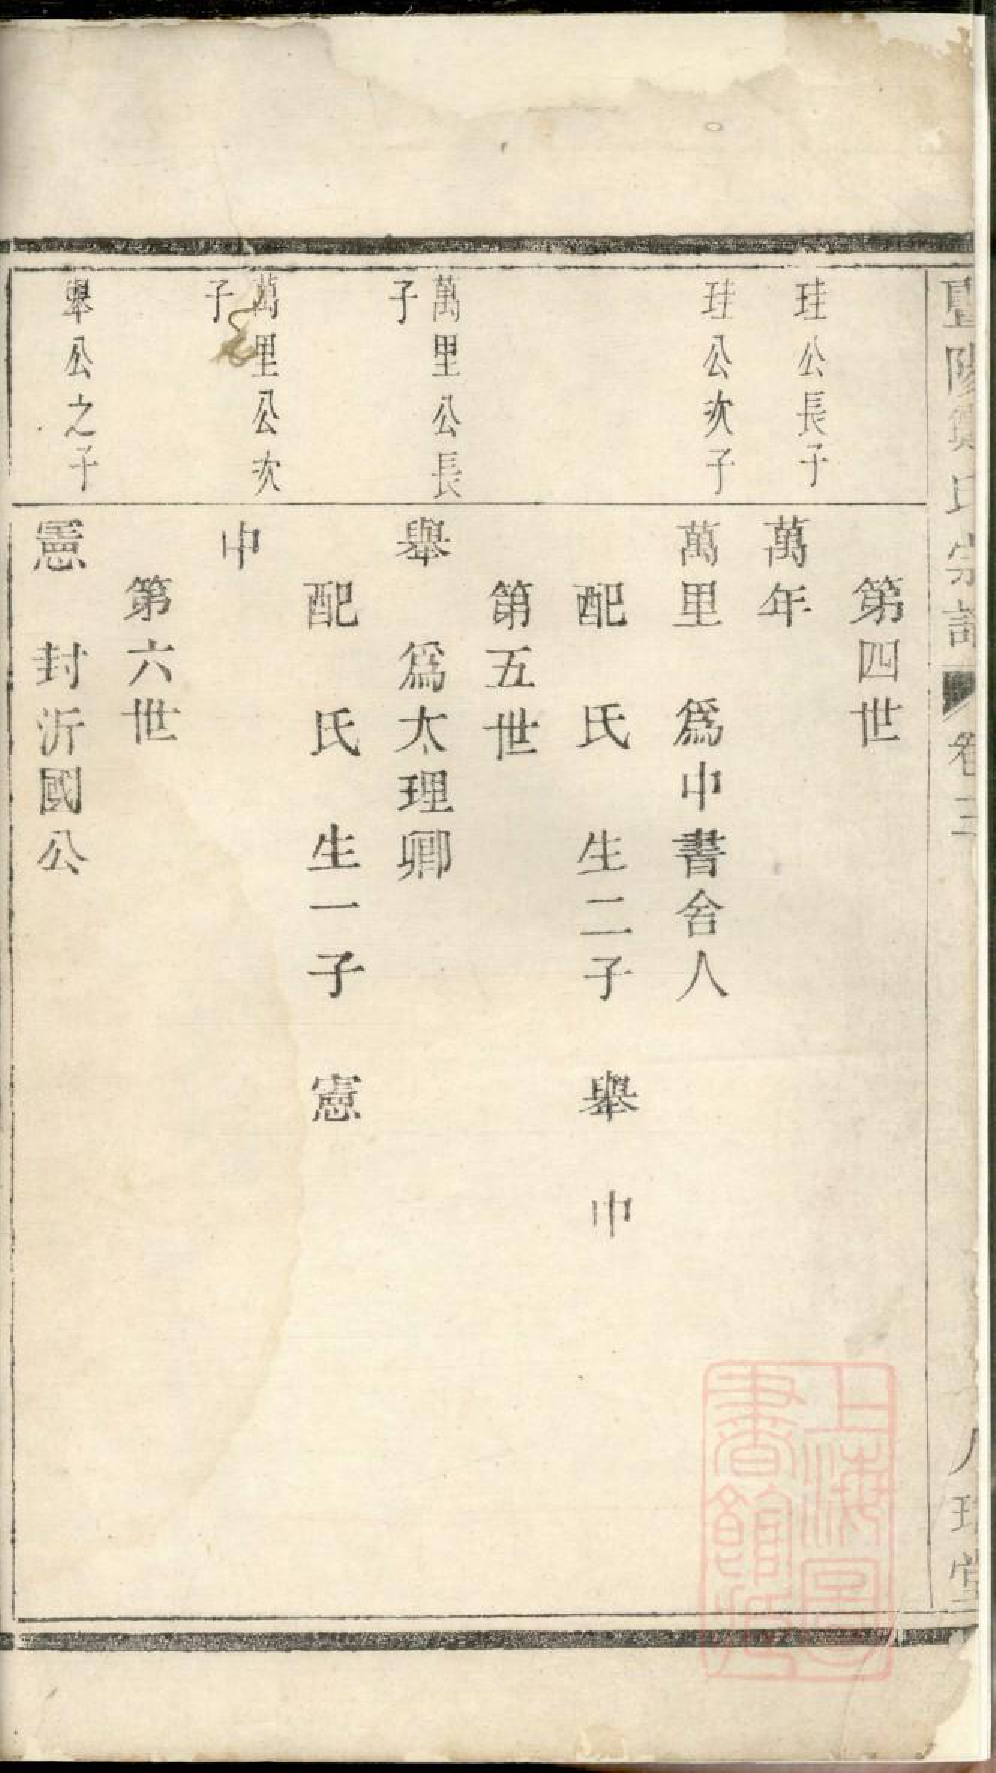 暨陽 氏宗譜 卷三
第四世
珪公長子
萬年
珪公次子
萬里 爲中書舍人
配 氏 生二子 舉 中
第五世
萬里公長
子
舉 爲太理卿
配 氏 生一子 憲
萬里公次
子
中
第六世
舉公之子
憲 封沂國公
上海圖
書館藏